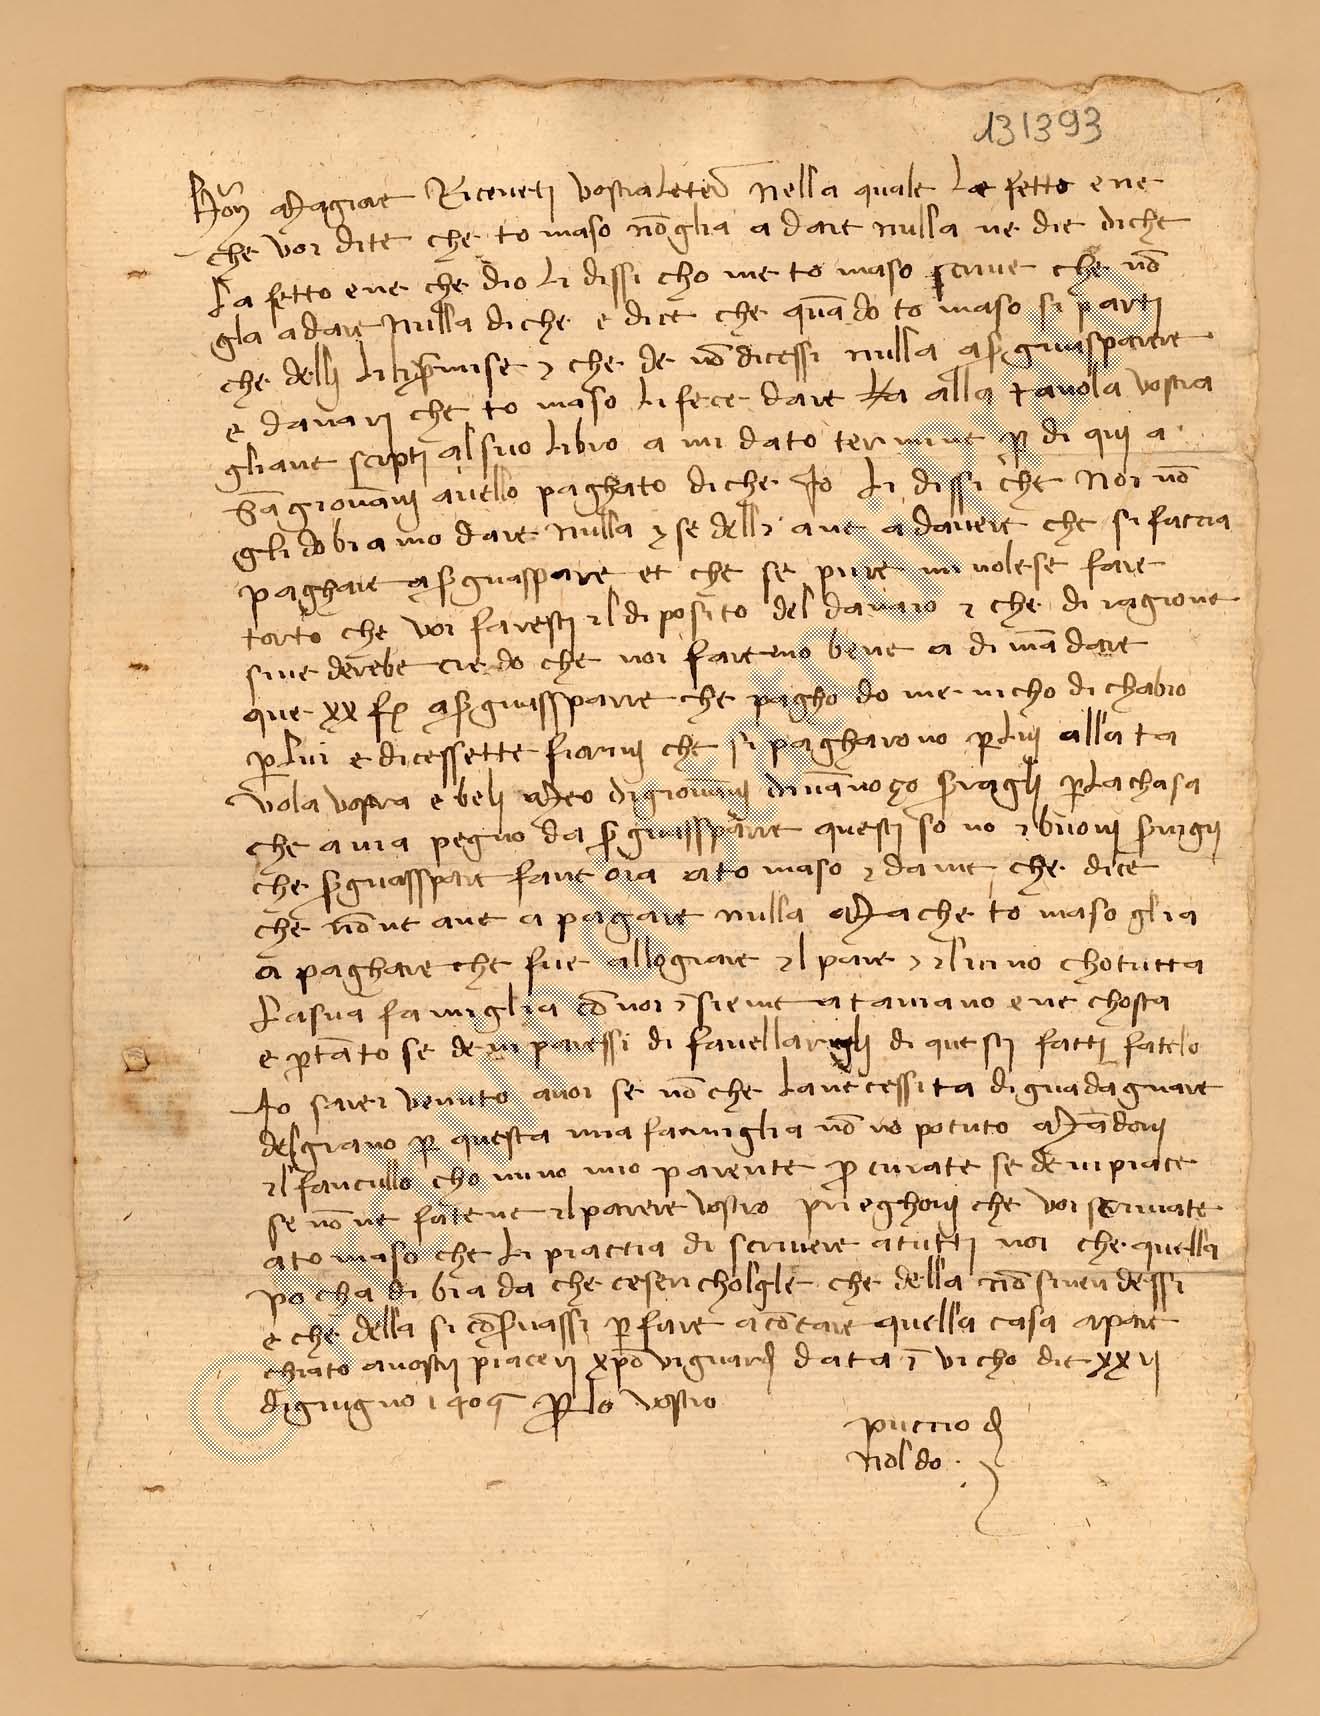 131393
Hon magiore Riceveti vostra letera nella quale La fetto e ne
che voi dite che to maso nō glia a dare nulla ne die diche
La fetto e ne che dio li dissi cho me to maso scrive che nō
gla adare nulla diche e dice che quādo to maso si parti
che delli li promise e che de nō dicessi nulla a s guasparre
e danari che to maso li fece dare alla tavola vostra
gliane scripti al suo libro a mi dato termine p di qui a
sā giovāni avello paghato diche Io li dissi che noi nō
gli dobiamo dare nulla e se delli ane adavere che si faccia
paghare a s guasspare et che se pure mi volese fare
torto che voi faresti il diposito del danaro e che di ragione
sine derebe credo che noi faremo bene a di mādare
que xx f a s guassparre che pagho do me nicho di chabio
p lui e dicessette fiorini che si pagharono p lui alla ta
vola vostra e beli di giovāni p la chasa
che a in a pegno da s guassparre questi so no e buoni
che s guasspare fane ora ato maso e dame che dice
che nō ne ane a pagare nulla Ma che to maso glia
a paghare che fue allogiare il pare e il cho tutta
La sua famiglia cō voi ī sieme a tamiano e ne chosta
e ptāto se de vi paressi di favellar gli di questi fatti fatelo
Io sarei venuto avoi se nō che la necessita di guadagnare
del grano p questa mia famiglia nō vo potuto Mādovi
il fanciullo cho mio parente p curate se de vi piace
se nō ne fatene il parere vostro prieghovi che voi scriviate
ato maso che li piaccia di scrivere a tutti noi che quella
pocha di biada che che della nō si vendessi
e che della si cōservassi p fare acōciare quella casa apare
chiato a vostri piaceri xpō vi guardi data ī vicho die xxvi
di giugno 140 p lo vostro
puccio d
naldo